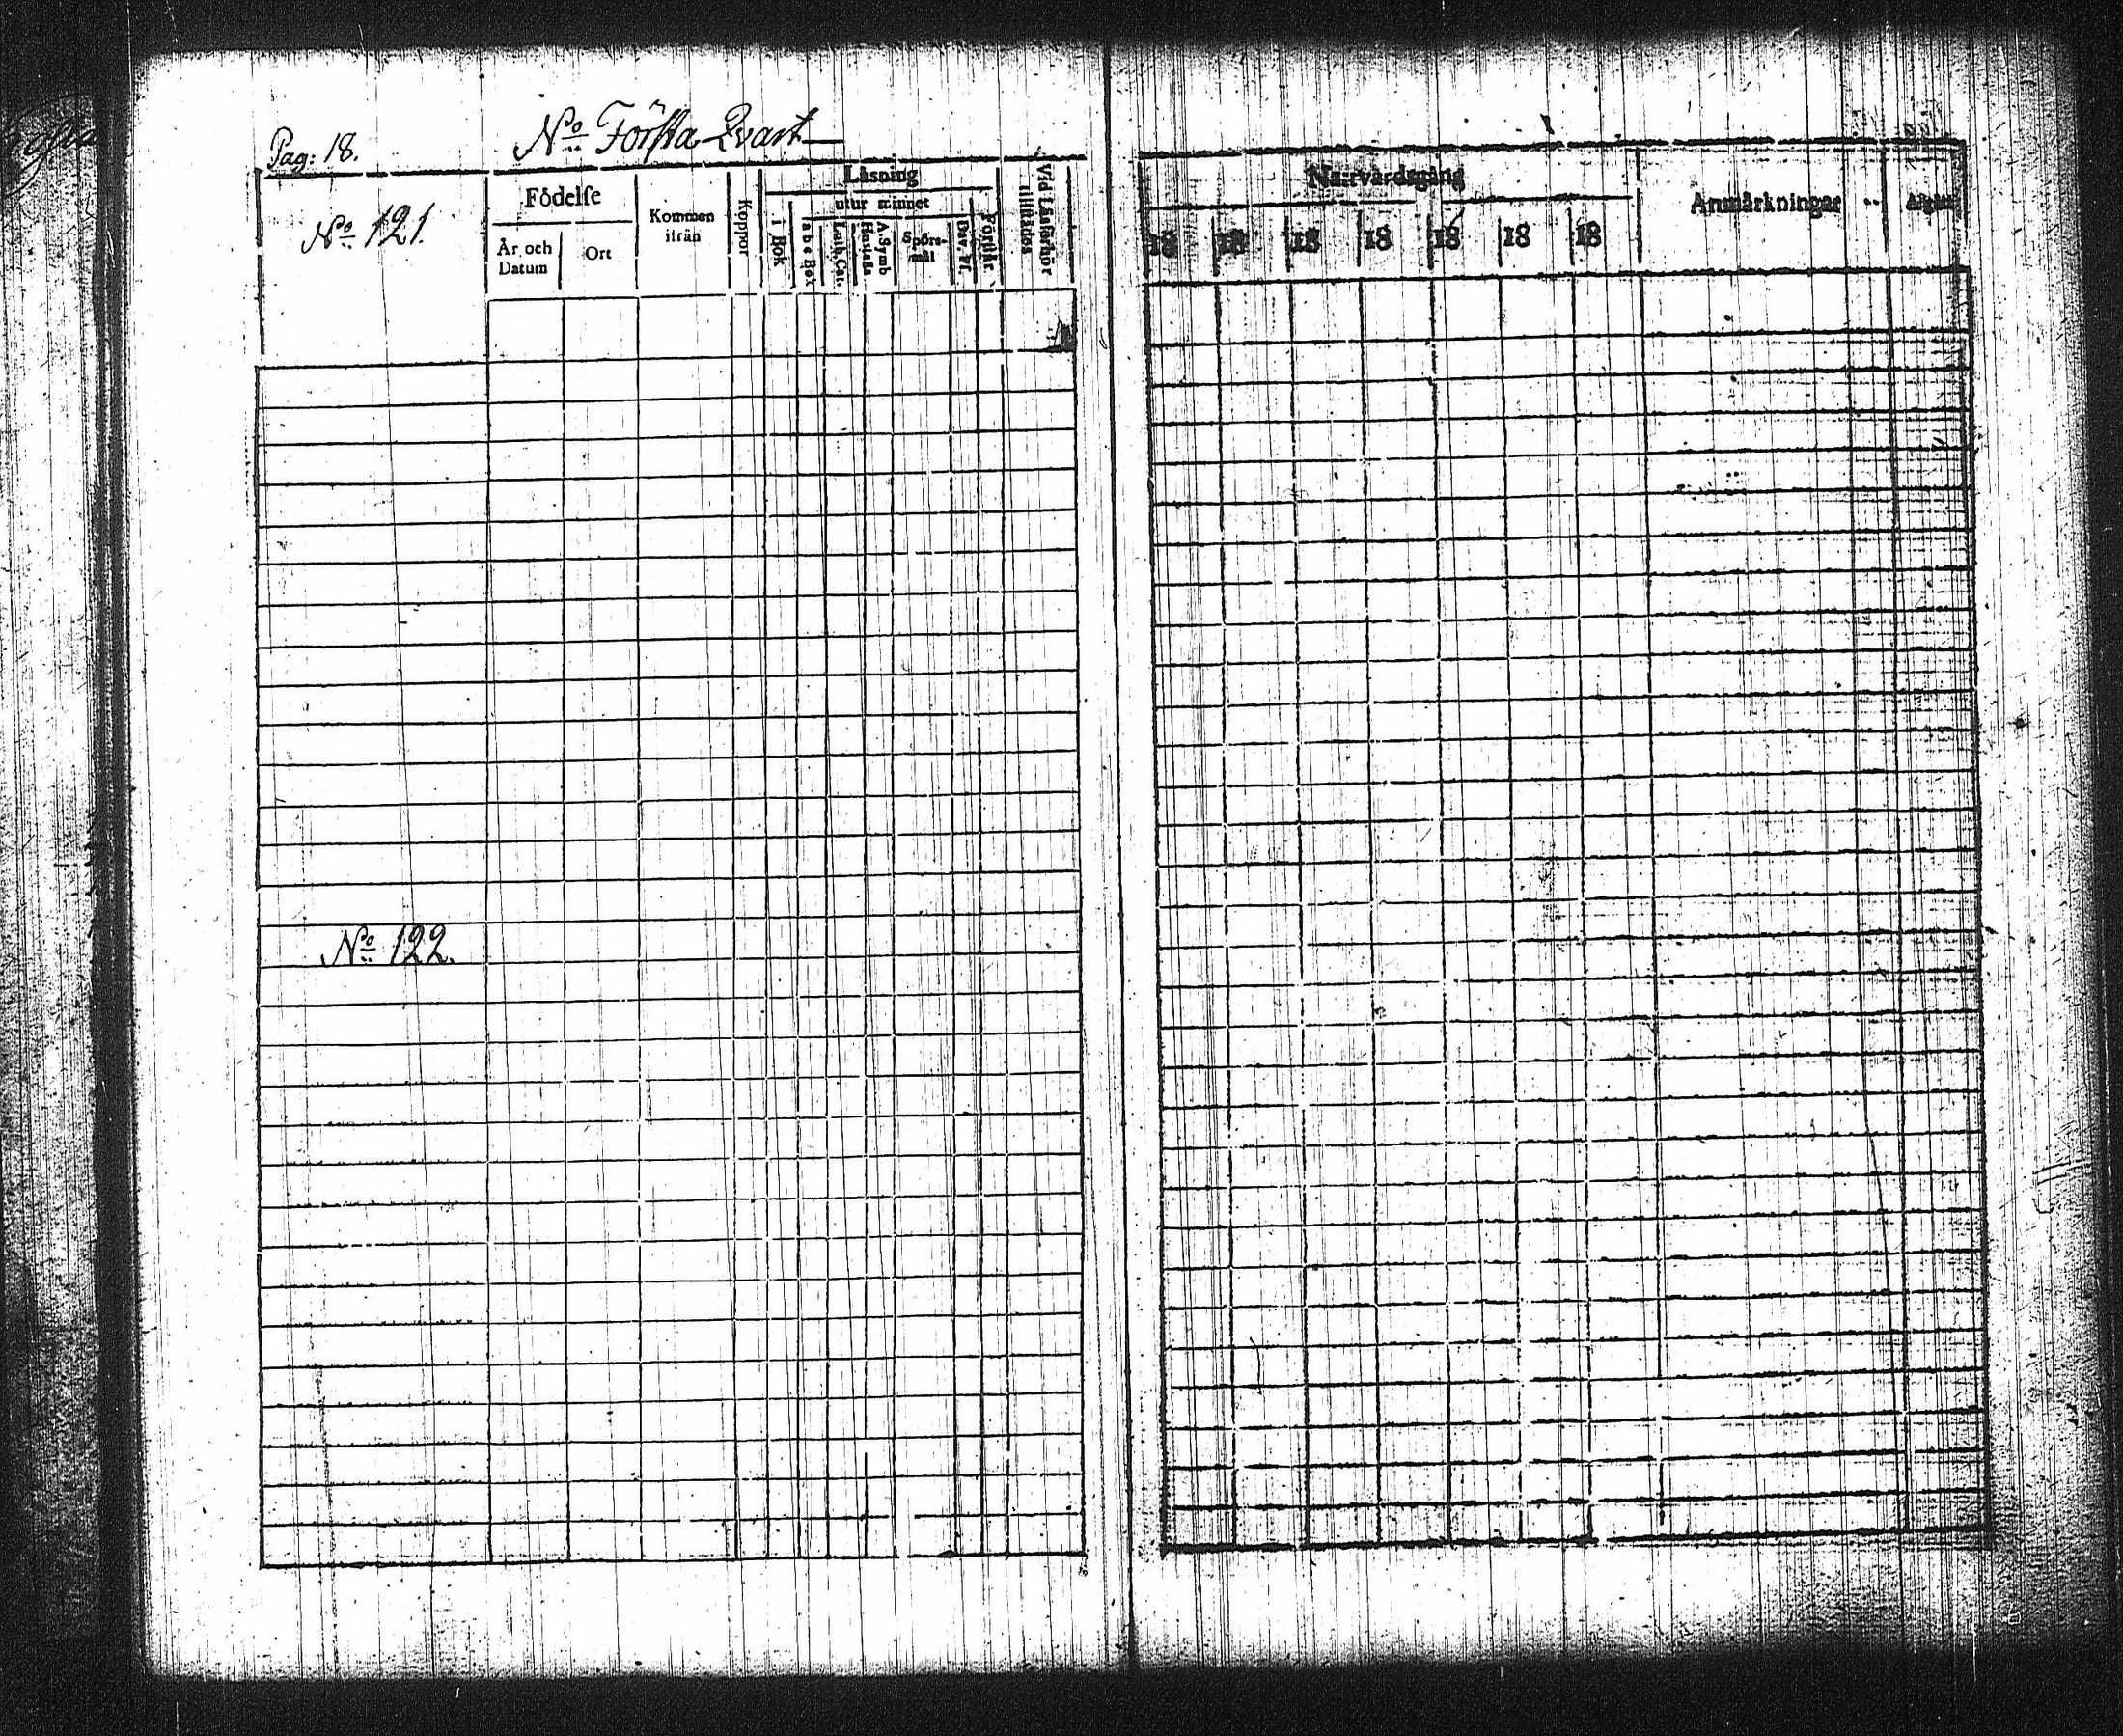 Pag: 18.
No: Första Qvart
No: 121.
Födelse
År och Datum
Ort
Kommen ifrån
Koppor
Läsning
i Bok
utur minnet
a b c Box
Luth. Cat.
Hustafla
A. Symb
Spörs-mål
Dav. Ps.
Förstår
Vid Läsförhör tillstädes
No: 122.
Nattvardsgång
18 18 18 18 18 18 18
Anmärkningar